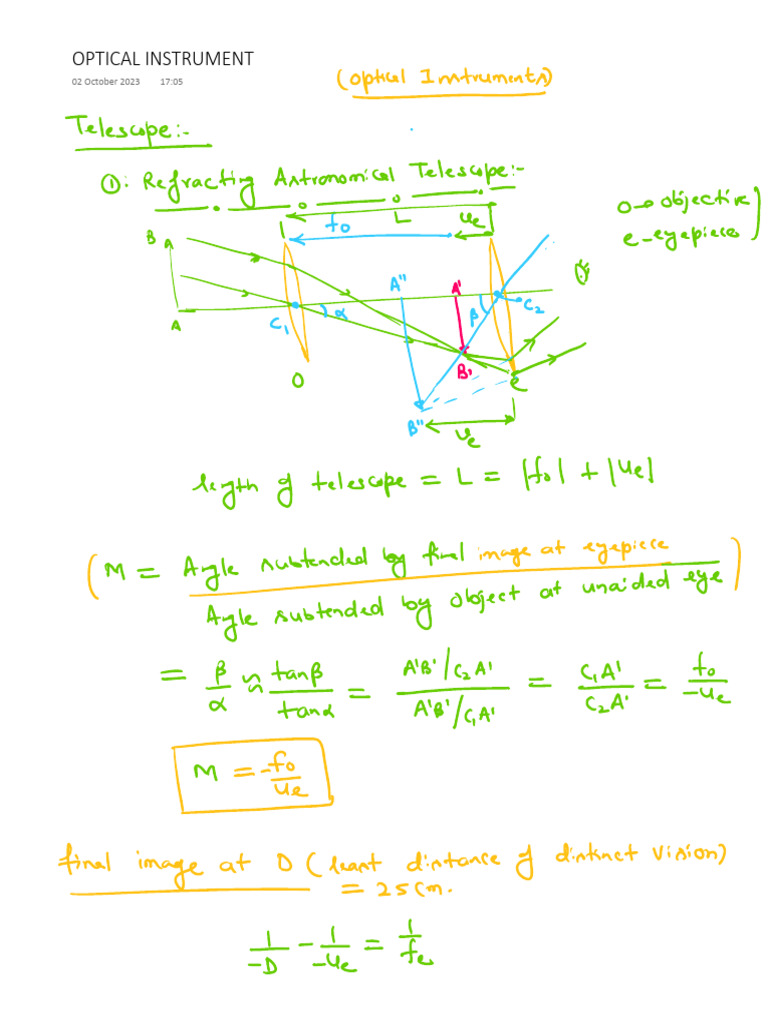 OPTICAL INSTRUMENT
02 October 2023 17:05
(Optical Instruments)
Telescope:-
①: Refracting Astronomical Telescope:-
L
fo
ue
o→objective
e-eyepieces
B
A
A
A"
A'
C1
α
β
C2
B1
O
e
B"
ue
length of telescope = L = |fo| + |ue|
(M = Angle subtended by final image at eyepiece)
Angle subtended by object at unaided eye
= β/α ≈ tanβ/tanα = A'B'/C2A' / A'B'/C1A' = C1A'/C2A' = fo/-ue
M = -fo/ue
final image at D (least distance of distinct vision)
= 25cm.
1/-D - 1/-ue = 1/fe